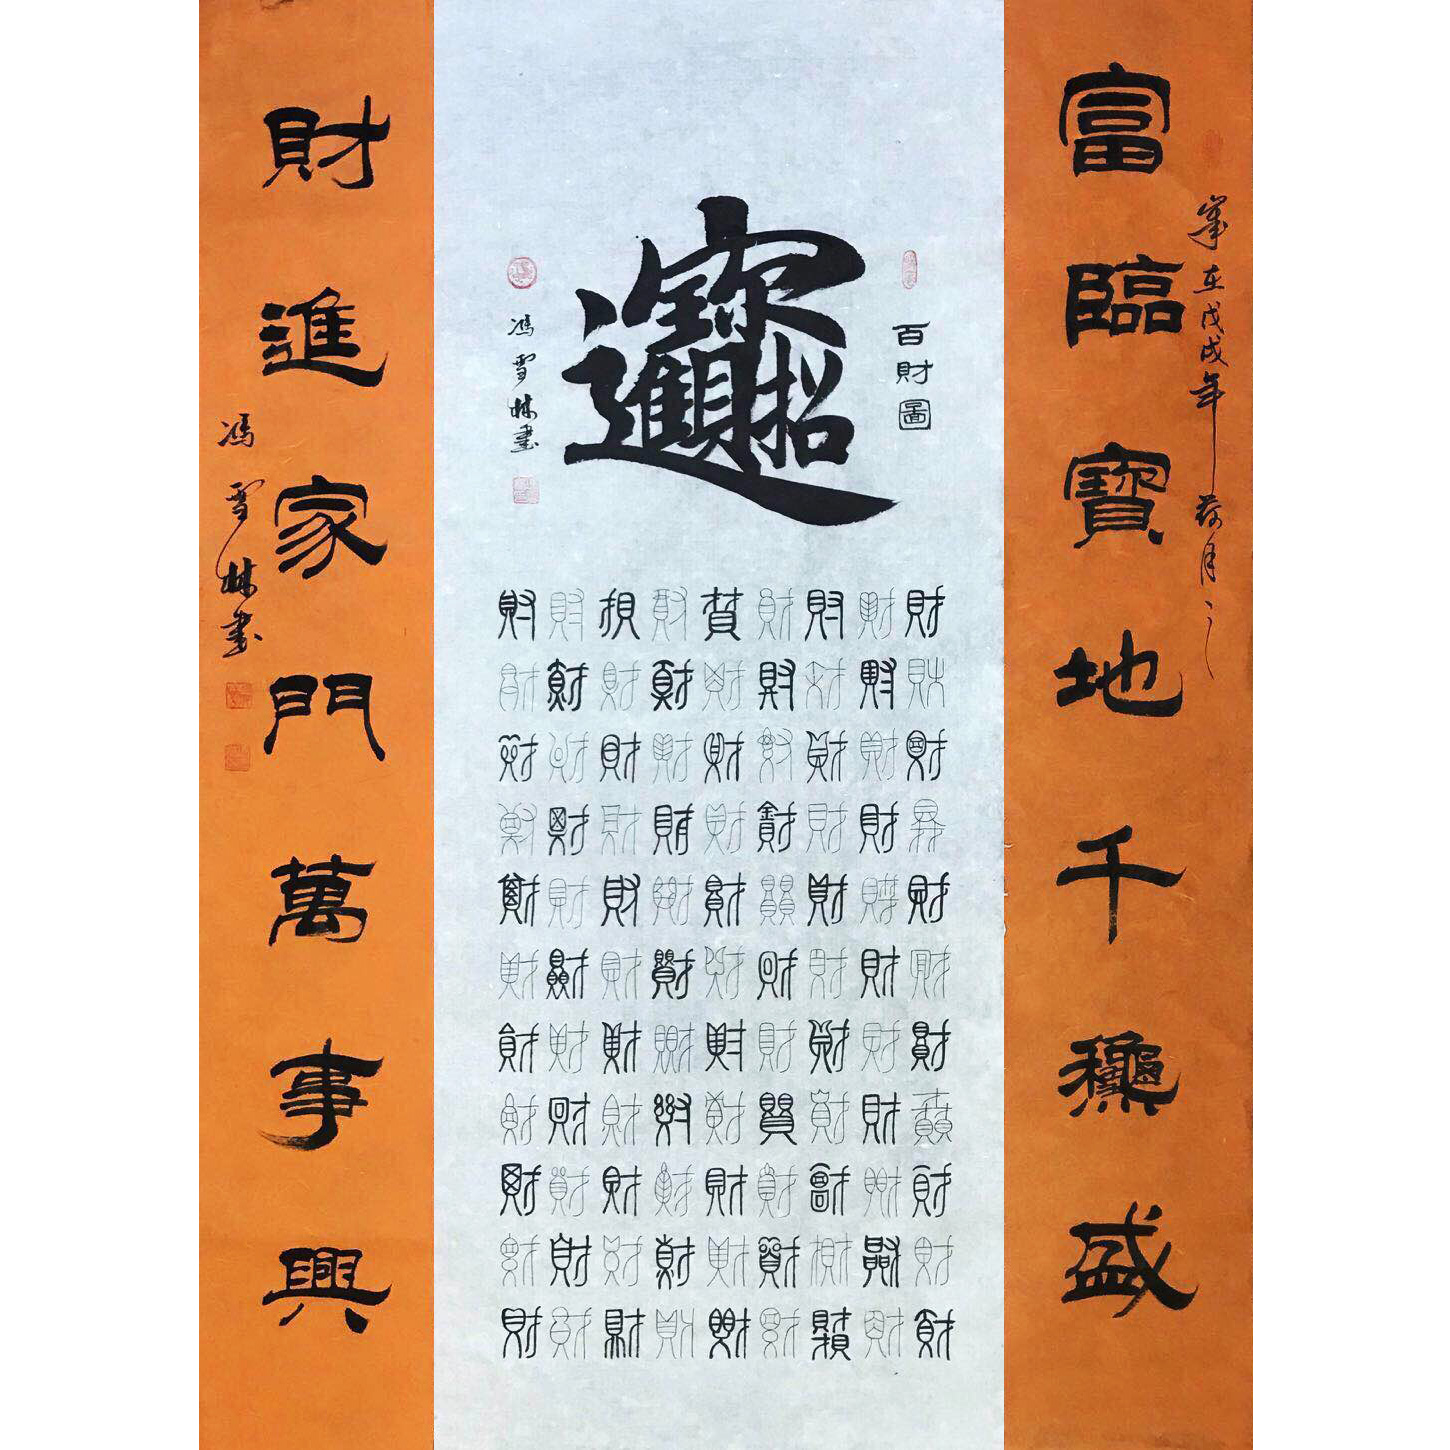 歲在戊戌年荷月之
富臨寶地千龝盛
百財圖
招財進寶
馮雪林書
財財財財財財財財財財財
財財財財財財財財財財財
財財財財財財財財財財財
財財財財財財財財財財財
財財財財財財財財財財財
財財財財財財財財財財財
財財財財財財財財財財財
財財財財財財財財財財財
財財財財財財財財財財財
財進家門萬事興
馮雪林書